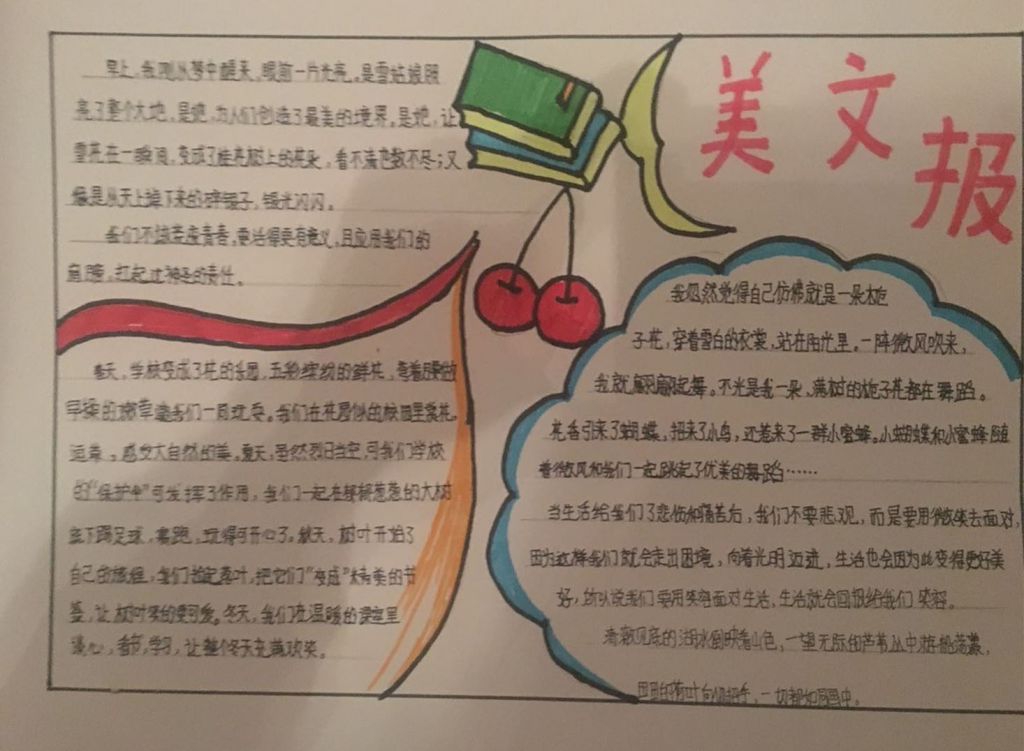 美文报
早上,我刚从梦中醒来,眼前一片光亮。是雪姑娘照
亮了整个大地,是她,为人们创造了最美的境界。是她,让
雪花在一瞬间,变成了唯美树上的花朵,看不清也数不尽;又
像是从天上掉下来的碎银子,银光闪闪。
我们不该荒废青春,要活得更有意义,且应用我们的
肩膀,扛起这神圣的责任。
春天,学校变成了花的乐园,五彩缤纷的鲜花,
早操的 我们一同玩耍。我们在花园似的校园里赏花。
,感受大自然的美。夏天,虽然烈日当空,可我们学校
的"保护伞"可发挥了作用,我们一起在郁郁葱葱的大树
底下踢足球,赛跑,玩得可开心了。秋天,树叶开始了
自己的旅程,我们拾起落叶,把它们"变成"精美的书
签,让树叶变的更可爱。冬天,我们在温暖的课室里
谈心,看书,学习,让整个冬天充满欢笑。
我忽然觉得自己仿佛就是一朵栀
子花,穿着雪白的衣裳,站在阳光里。一阵微风吹来,
我就翩翩起舞。不光是我一朵,满树的栀子花都在舞蹈。
花香引来了蝴蝶,招来了小鸟,还惹来了一群小蜜蜂。小蝴蝶和小蜜蜂随
着微风和我们一起跳起了优美的舞蹈……
当生活给我们了悲伤和痛苦后,我们不要悲观,而是要用微笑去面对,
因为这样我们就会走出困境,向着光明迈进,生活也会因为此变得更好美
好,所以说我们要用笑容面对生活,生活就会回报给我们笑容。
清澈见底的湖水倒映着山色,一望无际的芦苇丛中游船荡漾,
田田的荷叶向 招手,一切都如同画中。